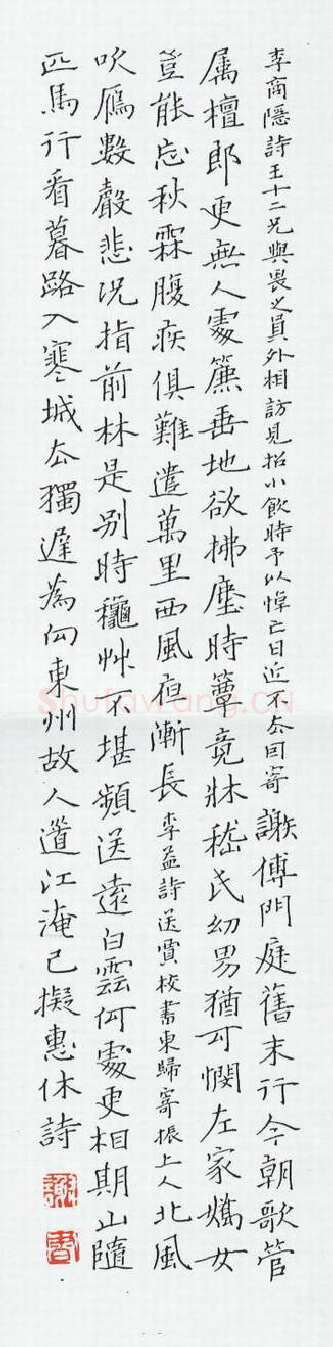 李商隱詩王十二兄與畏之員外相訪見招小飲時予以悼亡日近不去因寄謝傅門庭舊末行今朝歌管
属檀郎更無人處簾垂地欲拂塵時簟竟牀嵇氏幼男猶可憫左家嬌女
豈能忘秋霖腹疾俱難遣萬里西風夜漸長李益詩送賈校書東歸寄振上人北風
吹鴈數聲悲况指前林是别時龝艸不堪頻送遠白雲何處更相期山隨
匹馬行看暮路入寒城去獨遲為向東州故人道江淹已擬惠休詩
謝
Shufawang.CN